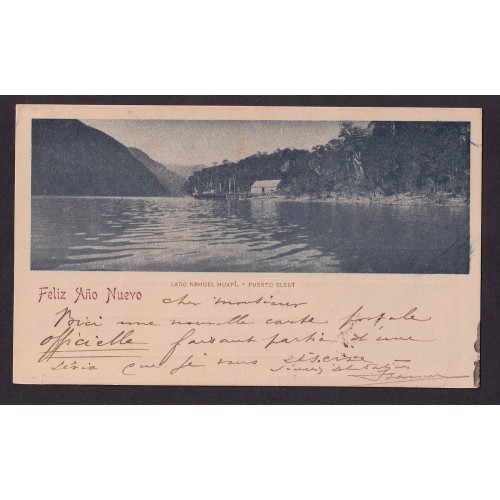 LAGO NAHUEL HUAPÍ. - PUERTO BLEST
Feliz Año Nuevo
cher monsieur
Voici une nouvelle carte postale
officielle faisant partie d'une
série que je vous réserve